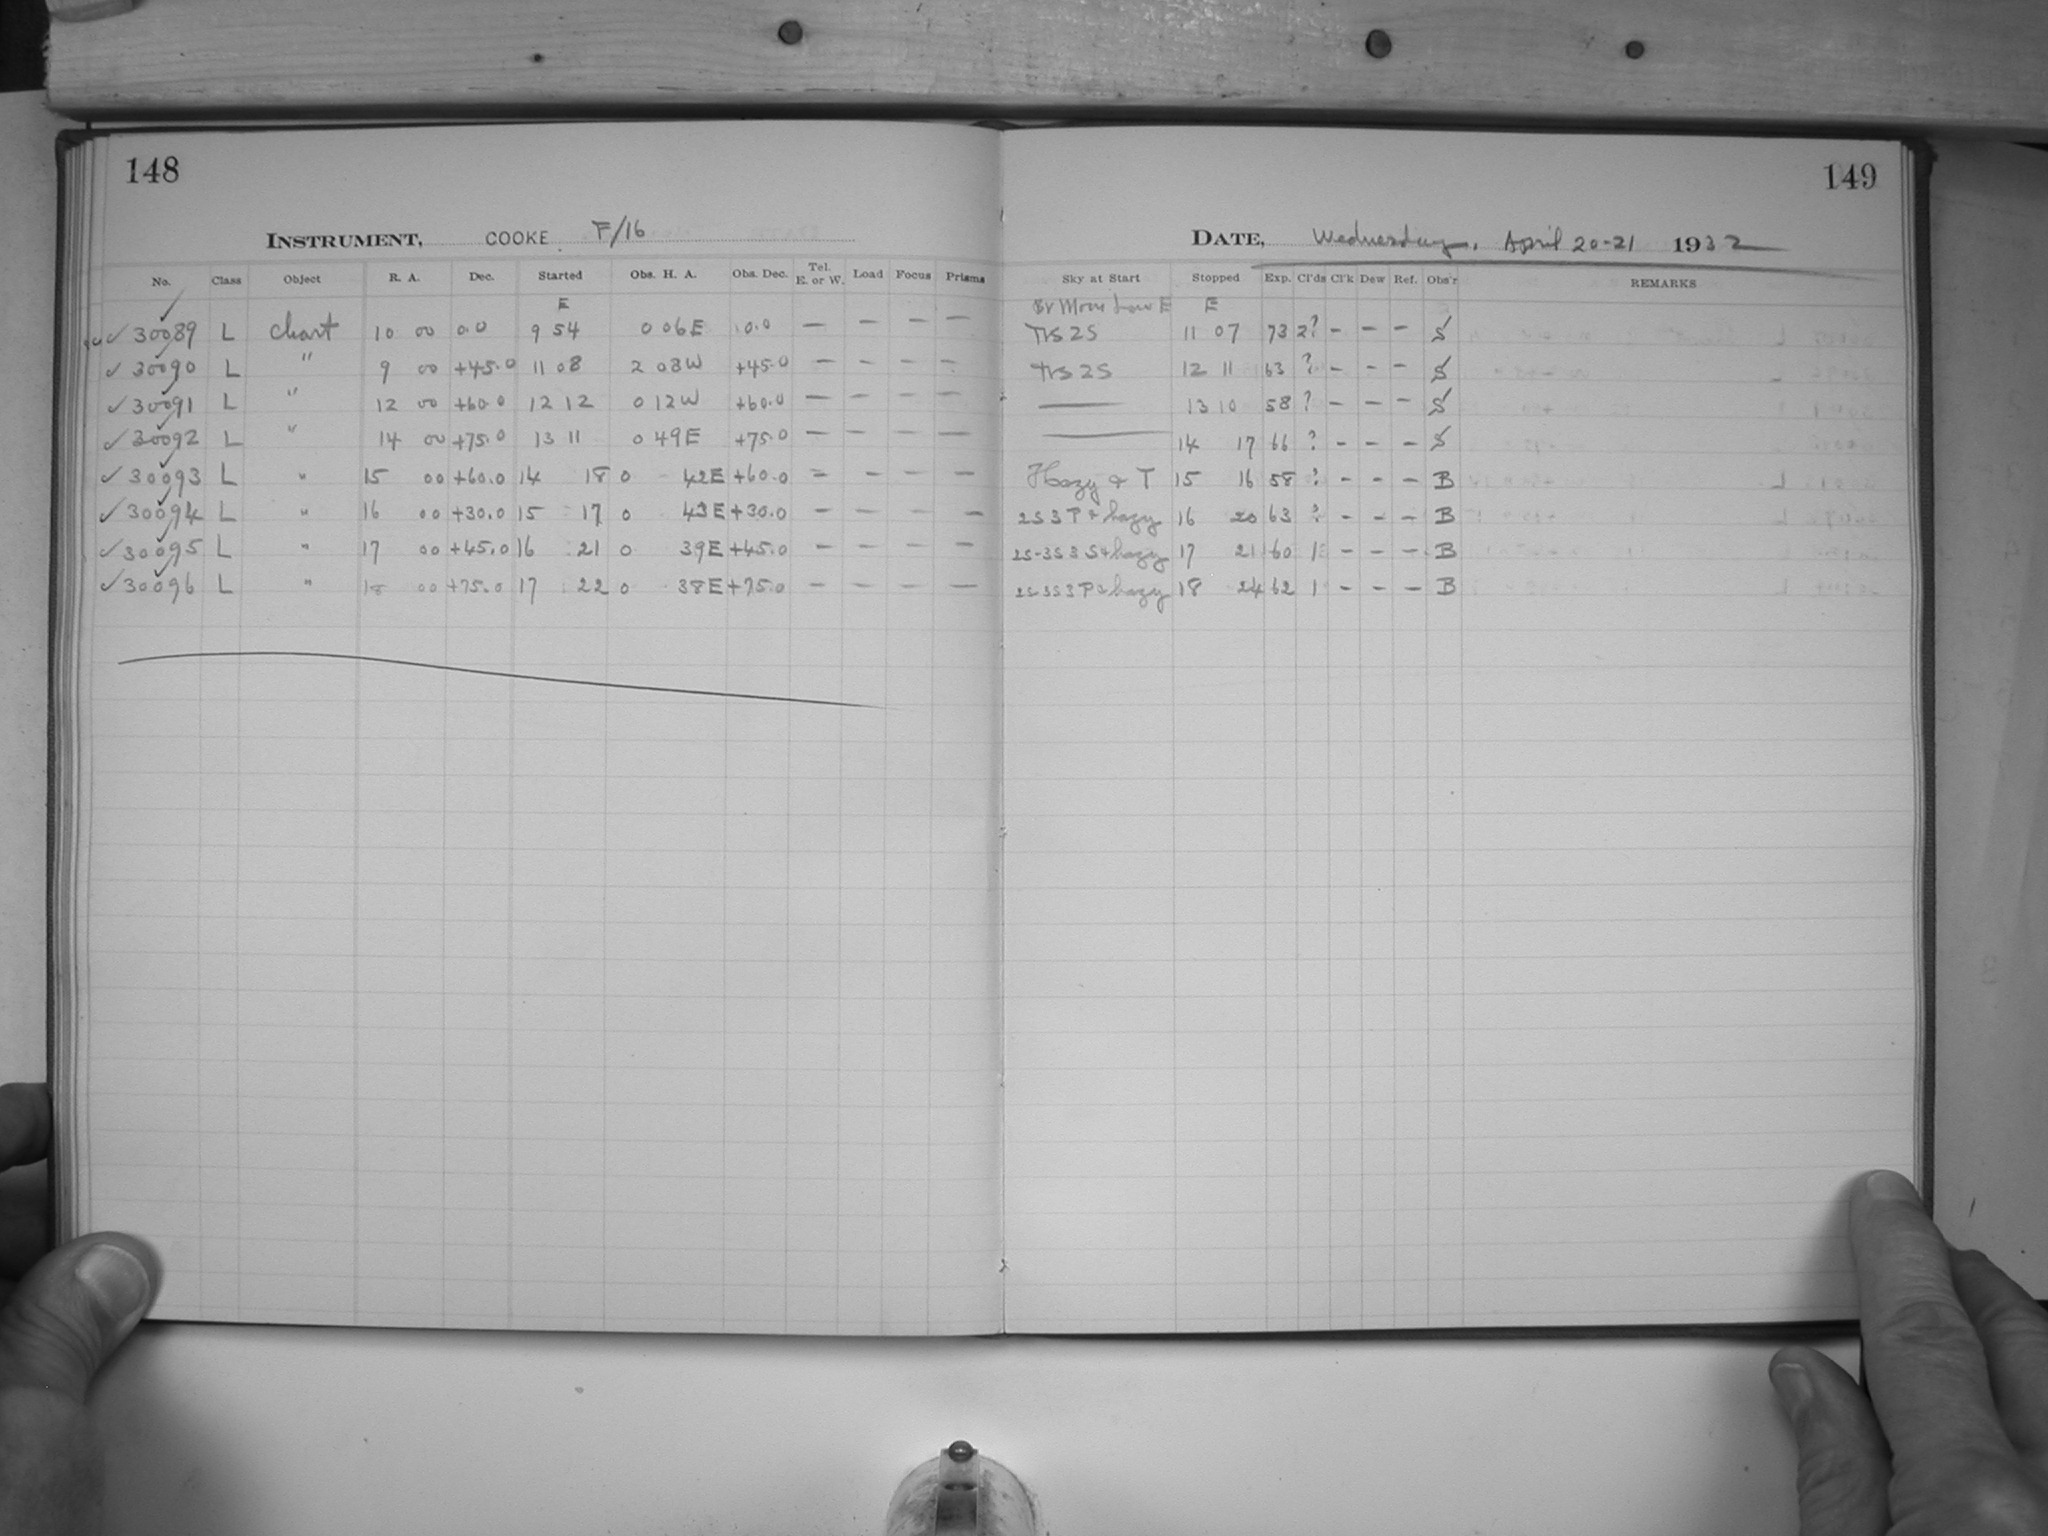 148
INSTRUMENT, COOKE F/16
No. Class Object R. A. Dec. Started Obs. H. A. Obs. Dec. Tel. E. or W. Load Focus Prisms
E
✓ 30089 L chart 10 00 0.0 9 54 0 06E 0.0 — — — —
✓ 30090 L " 9 00 +45.0 11 08 2 08W +45.0 — — — —
✓ 30091 L " 12 00 +60.0 12 12 0 12W +60.0 — — — —
✓ 30092 L " 14 00 +75.0 13 11 0 49E +75.0 — — — —
✓ 30093 L " 15 00 +60.0 14 18 0 42E +60.0 — — — —
✓ 30094 L " 16 00 +30.0 15 17 0 43E +30.0 — — — —
✓ 30095 L " 17 00 +45.0 16 21 0 39E +45.0 — — — —
✓ 30096 L " 18 00 +75.0 17 22 0 38E +75.0 — — — —
149
DATE, Wednesday, April 20-21 1932
Sky at Start Stopped Exp. Cl'ds Cl'k Dew Ref. Obs'r REMARKS
Br Moon Low E E
2S 11 07 73 2? - - - S
2S 12 11 63 ? - - - S
— 13 10 58 ? - - - S
— 14 17 66 ? - - - S
Hazy & T 15 16 58 ? - - - B
2S 3P & hazy 16 20 63 ? - - - B
2S-3S 3S & hazy 17 21 60 1 - - - B
2S-3S 3P & hazy 18 24 62 1 - - - B